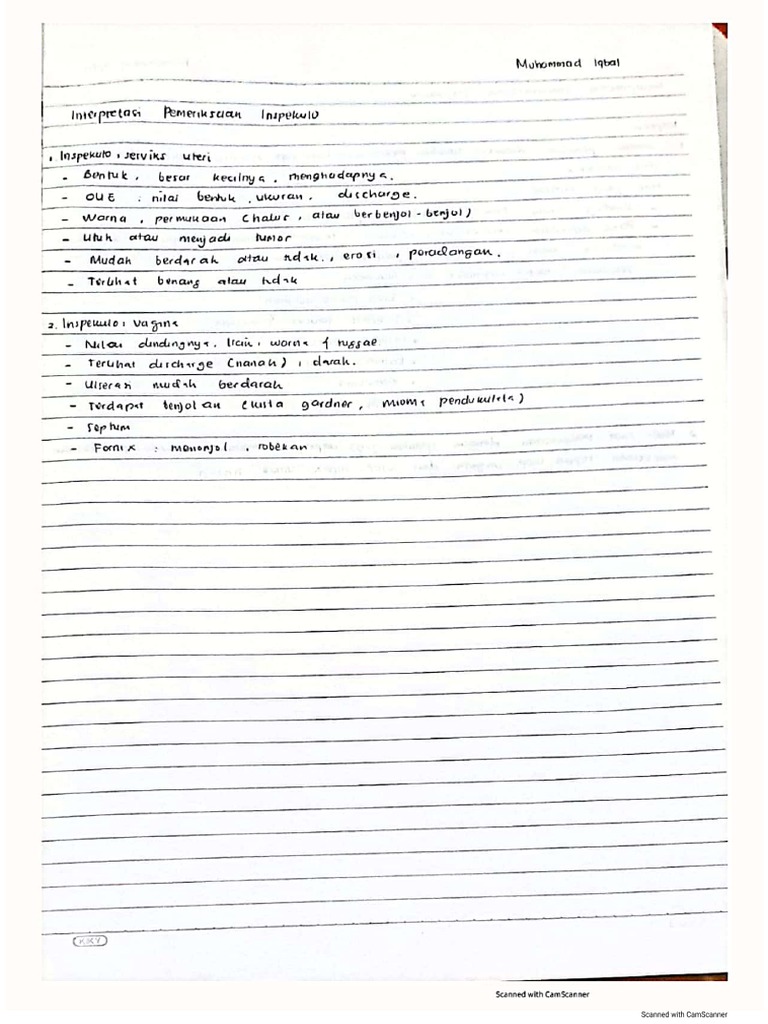 Muhammad Iqbal
Interpretasi Pemeriksaan Inspekulo
1. Inspekulo : serviks uteri
- Bentuk, besar kecilnya, menghadapnya.
- OUE : nilai bentuk, ukuran, discharge.
- Warna, permukaan (halus, atau berbenjol-benjol)
- Utuh atau menjadi tumor
- Mudah berdarah atau tidak, erosi, peradangan.
- Terlihat benang atau tidak
2. Inspekulo : Vagina
- Nilai dindingnya, licin, warna & ruggae
- Terlihat discharge (nanah), darah.
- Ulseran mudah berdarah
- Terdapat benjolan (kista gardner, mioma
- Septum
- Fornix : menonjol, robekan
KKY
Scanned with CamScanner
Scanned with CamScanner